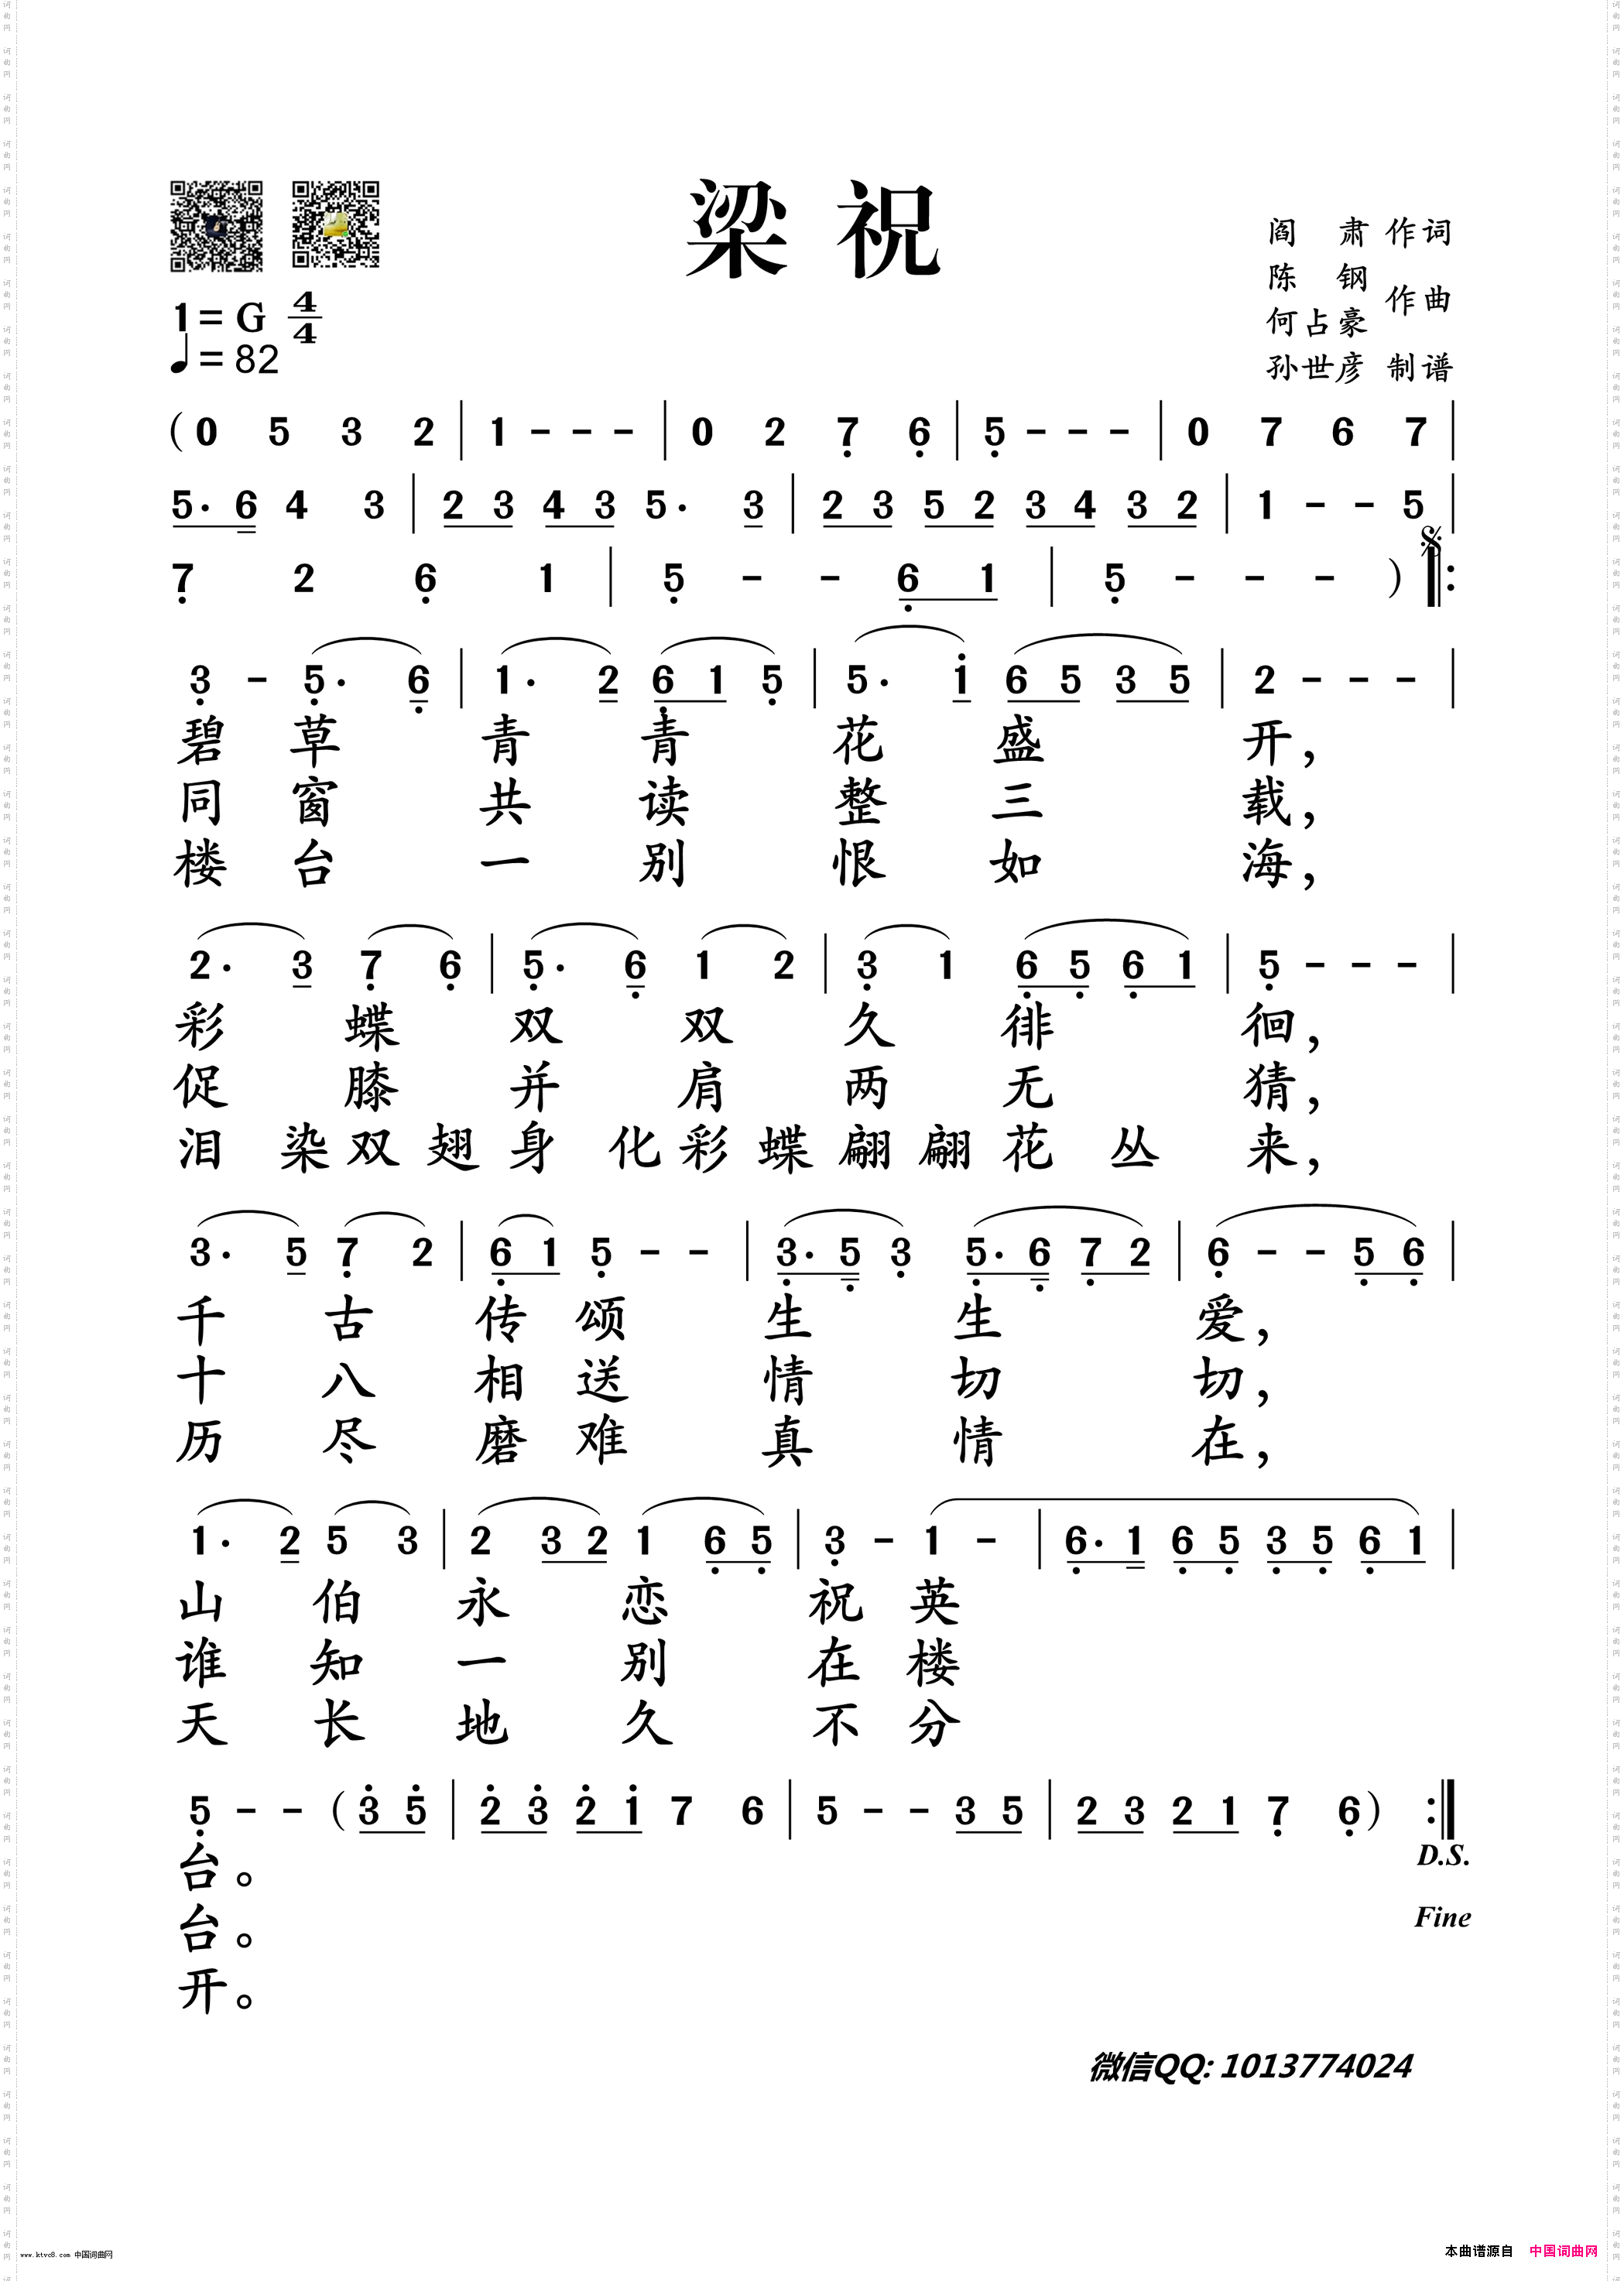 梁祝
阎 肃 作词
陈 钢
何占豪 作曲
孙世彦 制谱
1= G 4/4
♩= 82
( 0 5 3 2 | 1 - - - | 0 2 7̣ 6̣ | 5̣ - - - | 0 7 6 7 |
5· 6 4 3 | 2 3 4 3 5· 3 | 2 3 5 2 3 4 3 2 | 1 - - 5 |
7̣ 2 6̣ 1 | 5̣ - - 6̣ 1 | 5̣ - - - ) 𝄋 ‖:
3̣ - 5̣· 6̣ | 1· 2 6̣ 1 5̣ | 5· 1̇ 6 5 3 5 | 2 - - - |
碧 草 青 青 花 盛 开,
同 窗 共 读 整 三 载,
楼 台 一 别 恨 如 海,
2· 3 7̣ 6̣ | 5̣· 6̣ 1 2 | 3̣ 1 6̣ 5̣ 6̣ 1 | 5̣ - - - |
彩 蝶 双 双 久 徘 徊,
促 膝 并 肩 两 无 猜,
泪 染 双 翅 身 化 彩 蝶 翩 翩 花 丛 来,
3· 5 7̣ 2 | 6̣ 1 5̣ - - | 3̣· 5̣ 3̣ 5̣· 6̣ 7̣ 2 | 6̣ - - 5̣ 6̣ |
千 古 传 颂 生 生 爱,
十 八 相 送 情 切 切,
历 尽 磨 难 真 情 在,
1· 2 5 3 | 2 3 2 1 6̣ 5̣ | 3̣ - 1 - | 6̣· 1 6̣ 5̣ 3̣ 5̣ 6̣ 1 |
山 伯 永 恋 祝 英
谁 知 一 别 在 楼
天 长 地 久 不 分
5̣ - - ( 3̇ 5̇ | 2̇ 3̇ 2̇ 1̇ 7 6 | 5 - - 3 5 | 2 3 2 1 7̣ 6̣ ) :‖
台。 D.S.
台。 Fine
开。
微信QQ: 1013774024
www.ktvc8.com 中国词曲网
本曲谱源自 中国词曲网